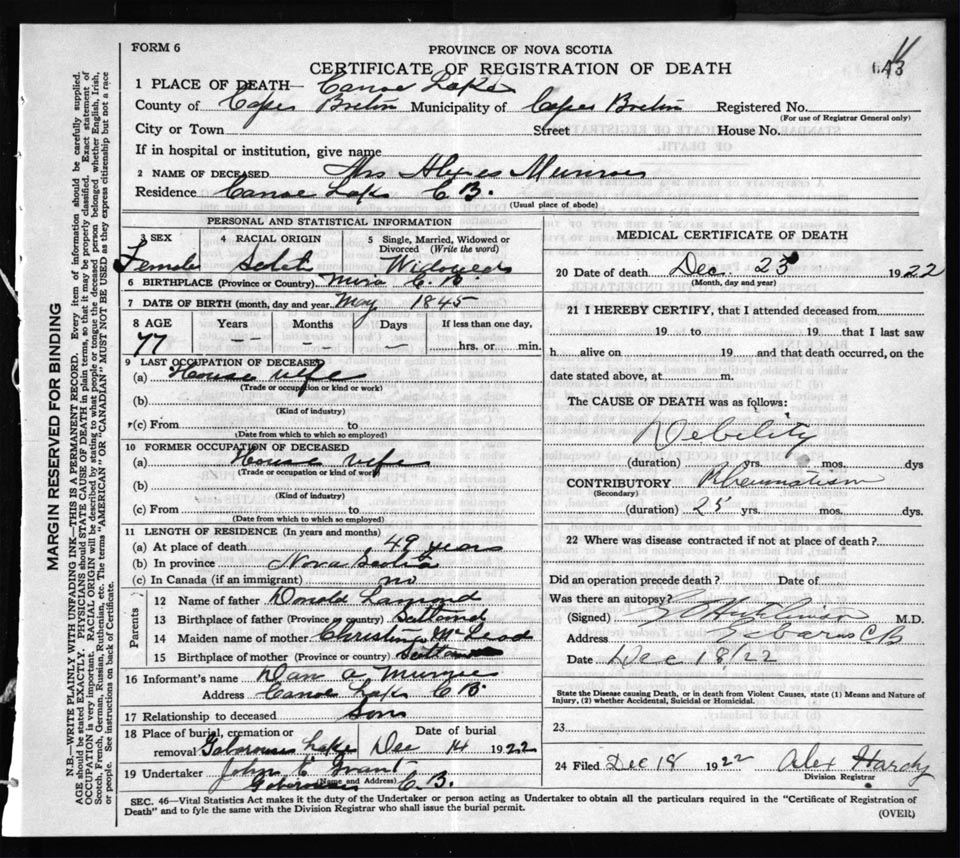 FORM 6
PROVINCE OF NOVA SCOTIA
CERTIFICATE OF REGISTRATION OF DEATH
1 PLACE OF DEATH— Canoe Lake
County of Cape Breton Municipality of Cape Breton Registered No.
(For use of Registrar General only)
City or Town Street House No.
If in hospital or institution, give name
2 NAME OF DECEASED Mrs Munroe
Residence Canoe Lake C B.
(Usual place of abode)
PERSONAL AND STATISTICAL INFORMATION
3 SEX 4 RACIAL ORIGIN 5 Single, Married, Widowed or
Divorced (Write the word)
Female Widowed
6 BIRTHPLACE (Province or Country) Mira C. B.
7 DATE OF BIRTH (month, day and year May 1845
8 AGE Years Months Days If less than one day,
77 -- -- -- hrs. or min.
9 LAST OCCUPATION OF DECEASED
(a) House wife
(Trade or occupation or kind or work)
(b)
(Kind of industry)
(c) From to
(Date from which to which so employed)
10 FORMER OCCUPATION OF DECEASED
(a) House wife
(Trade or occupation or kind of work)
(b)
(Kind of industry)
(c) From to
(Date from which to which so employed)
11 LENGTH OF RESIDENCE (In years and months)
(a) At place of death 49 years
(b) In province Nova Scotia
(c) In Canada (if an immigrant) no
Parents
12 Name of father Donald Lamond
13 Birthplace of father (Province or country) Scotland
14 Maiden name of mother Christina McLeod
15 Birthplace of mother (Province or country) Scotland
16 Informant's name Dan a
Address Canoe Lake C B.
17 Relationship to deceased Son
18 Place of burial, cremation or Date of burial
removal Lake Dec 14 1922
19 Undertaker John Grant
(Name and Address) C. B.
MEDICAL CERTIFICATE OF DEATH
20 Date of death Dec 1922
(Month, day and year)
21 I HEREBY CERTIFY, that I attended deceased from
19 to 19 that I last saw
h alive on 19 and that death occurred, on the
date stated above, at m.
The CAUSE OF DEATH was as follows:
Debility
(duration) yrs. mos. dys
CONTRIBUTORY Rheumatism
(Secondary)
(duration) 25 yrs. mos. dys.
22 Where was disease contracted if not at place of death?
Did an operation precede death? Date of
Was there an autopsy?
(Signed) M.D.
Address Gabarus C B
Date Dec 18/22
State the Disease causing Death, or in death from Violent Causes, state (1) Means and Nature of
Injury, (2) whether Accidental, Suicidal or Homicidal.
23
24 Filed Dec 18 1922 Alex Hardy
Division Registrar
SEC. 46—Vital Statistics Act makes it the duty of the Undertaker or person acting as Undertaker to obtain all the particulars required in the "Certificate of Registration of
Death" and to fyle the same with the Division Registrar who shall issue the burial permit.
(OVER)
MARGIN RESERVED FOR BINDING
N.B.—WRITE PLAINLY WITH UNFADING INK—THIS IS A PERMANENT RECORD. Every item of information should be carefully supplied.
AGE should be stated EXACTLY. PHYSICIANS should STATE CAUSE OF DEATH in plain terms, so that it may be properly classified. Exact statement of
OCCUPATION is very important. RACIAL ORIGIN will be described by stating to what people or tongue the deceased person belonged whether English, Irish,
Scotch, French, German, Russian, Ruthenian, etc. The terms "AMERICAN" OR "CANADIAN" MUST NOT BE USED as they express citizenship but not a race
or people. See instructions on back of Certificate.